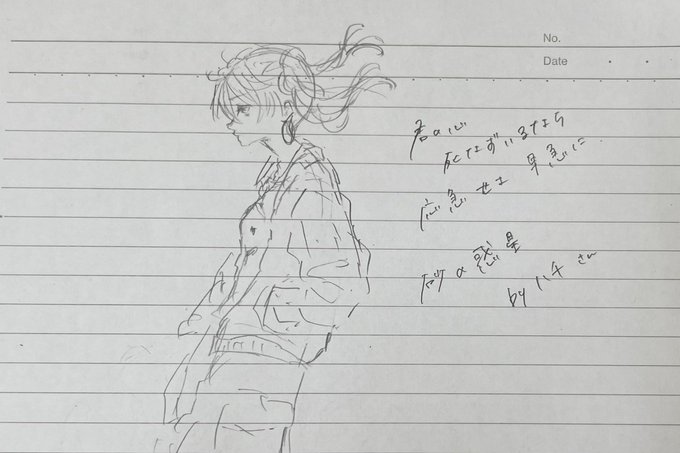 No.
Date
君の心
死なずいるなら
応急せよ 早急に
砂の惑星
by ハチ さん